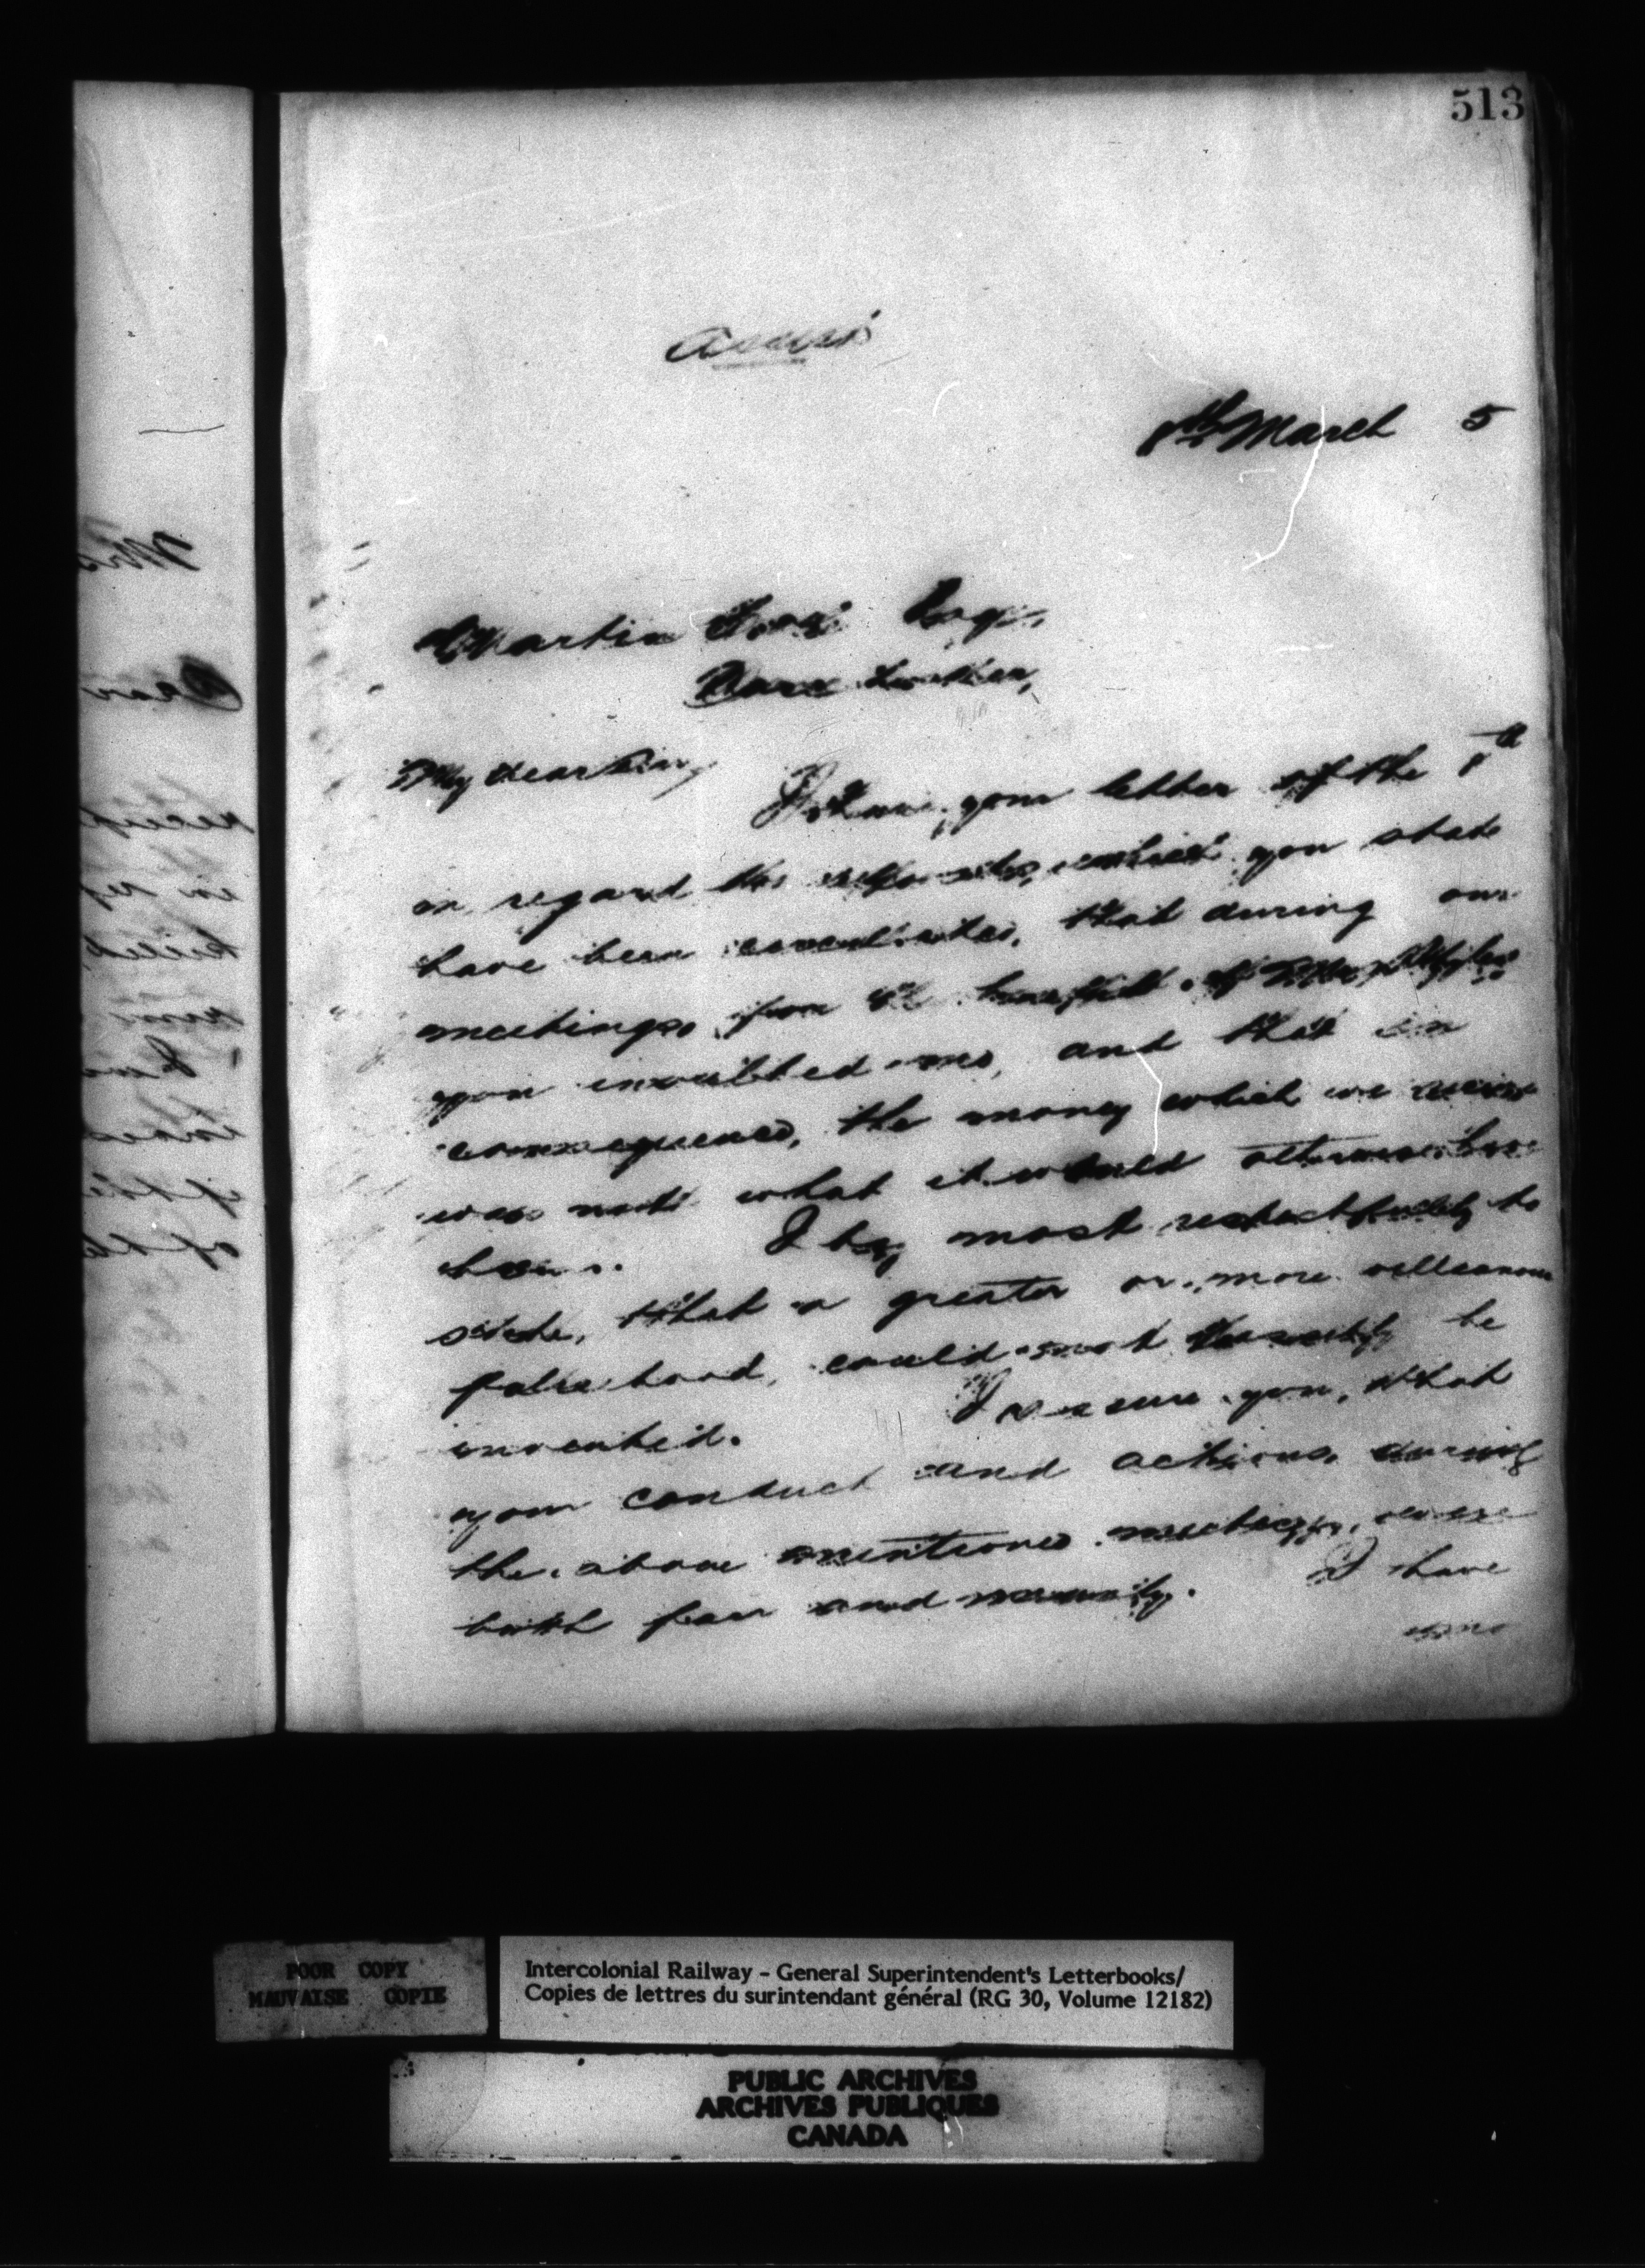 513
8th March 5
Martin Esq.,
My dear Sir,
I have your letter of the 8th
in regard the reports, which you state
have been circulated, that during our
meetings for the benefit of
you insulted me, and that in
consequence, the money which we
was not what it would otherwise have
been. I beg most respectfully to
state, that a greater or more villainous
falsehood, could not possibly be
invented. I assure you, that
your conduct and actions, during
the above mentioned meetings, were
both fair and manly. I have
Mrs
Dear
in re
killed
if the
of the
POOR COPY
MAUVAISE COPIE
Intercolonial Railway – General Superintendent's Letterbooks/
Copies de lettres du surintendant général (RG 30, Volume 12182)
PUBLIC ARCHIVES
ARCHIVES PUBLIQUES
CANADA